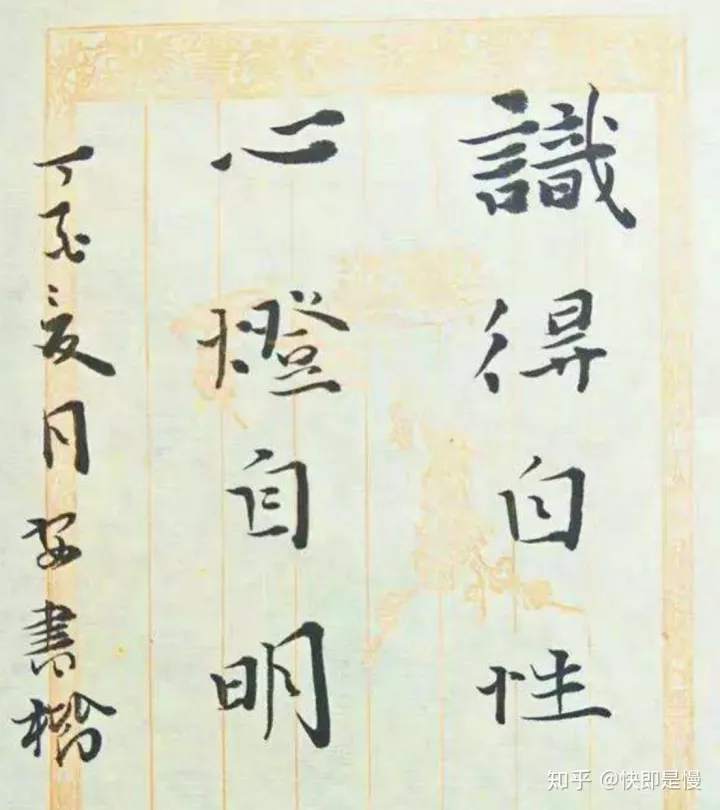 識得自性
心燈自明
丁亥夏月 安書楷
知乎 @快即是慢